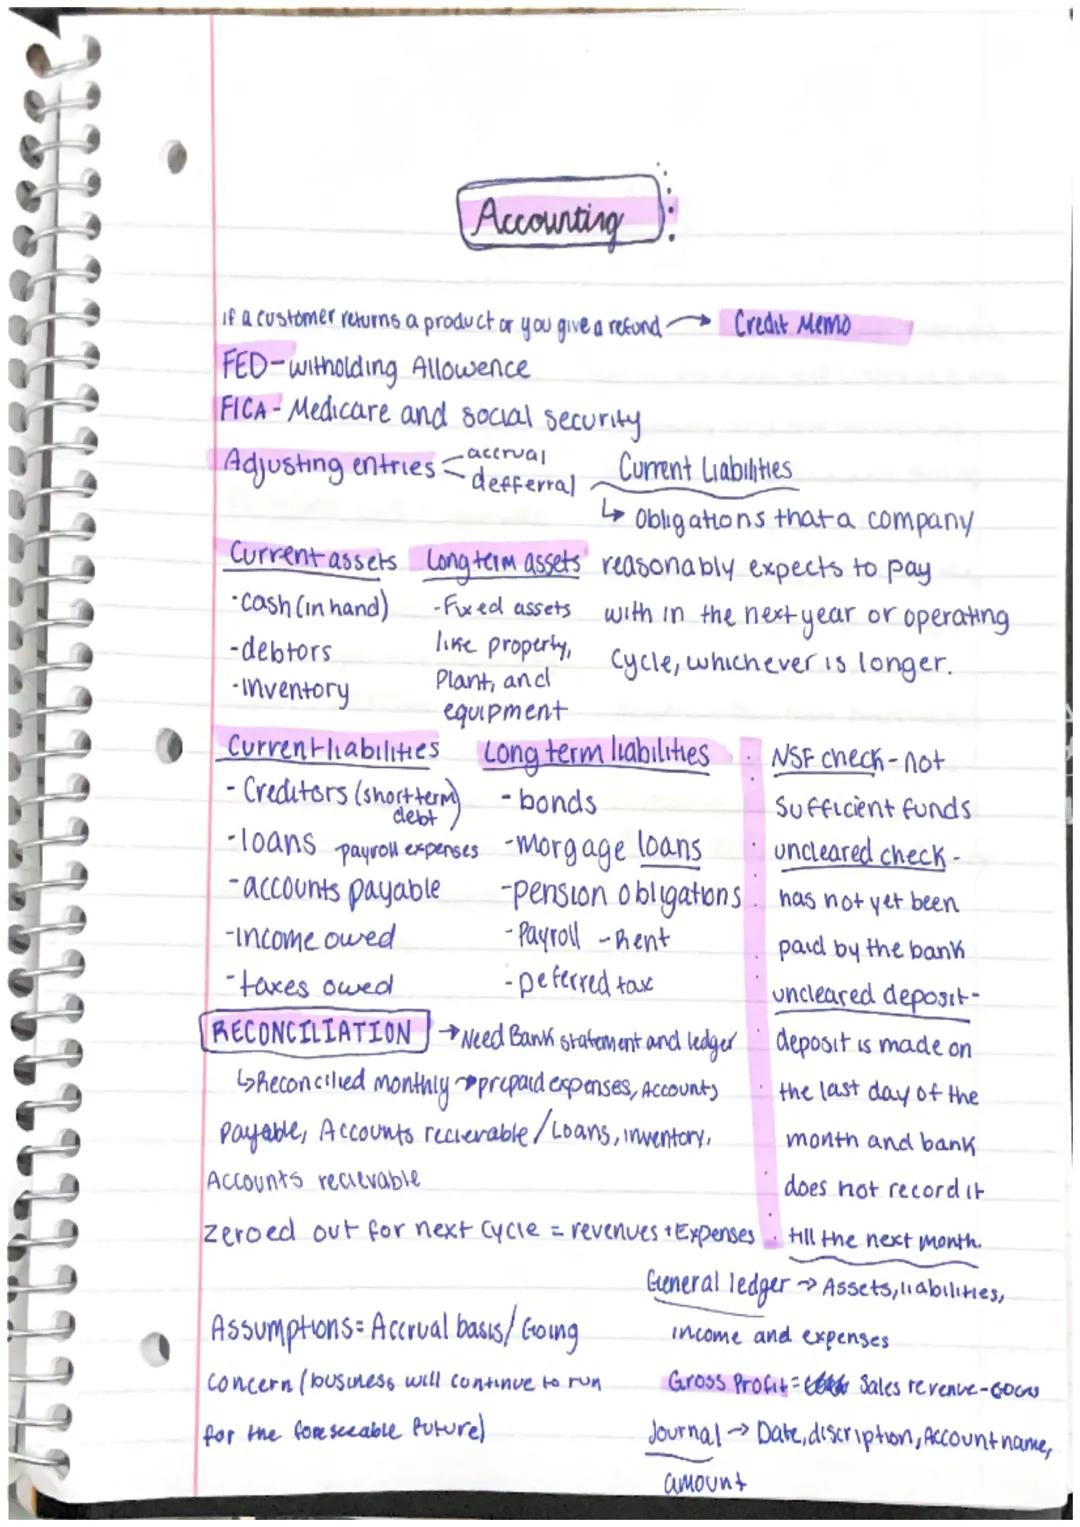 Accounting
if a customer returns a product or you give a refund → Credit Memo
FED-witholding Allowence
FICA - Medicare and social security
Adjusting entries
-accrual
-defferral
Current Liabilities
↳ Obligations that a company
reasonably expects to pay
with in the next year or operating
Cycle, whichever is longer.
Current assets
-cash (in hand)
-debtors
-Inventory
Long term assets
-Fixed assets
like property,
Plant, and
equipment
Current liabilities
- Creditors (short term
debt)
-loans payroll expenses
-accounts payable
-income owed
-taxes owed
Long term liabilities
- bonds
-morgage loans
-pension obligations
- Payroll - Rent
-Deferred tax
NSF check - not
Sufficient funds
uncleared check -
has not yet been
paid by the bank
uncleared deposit-
deposit is made on
the last day of the
month and bank
does not record it
till the next month.
RECONCILIATION → Need Bank statement and ledger
↳ Reconcilied monthly → prepaid expenses, Accounts
payable, Accounts recierable / Loans, inventory,
Accounts recievable
Zeroed out for next cycle = revenues + Expenses
General ledger → Assets, liabilities,
income and expenses
Assumptions = Accrual basis / Going
concern (business will continue to run
for the foreseeable future)
Gross Profit = Sales revenue -
Journal → Date, discription, Account name,
amount